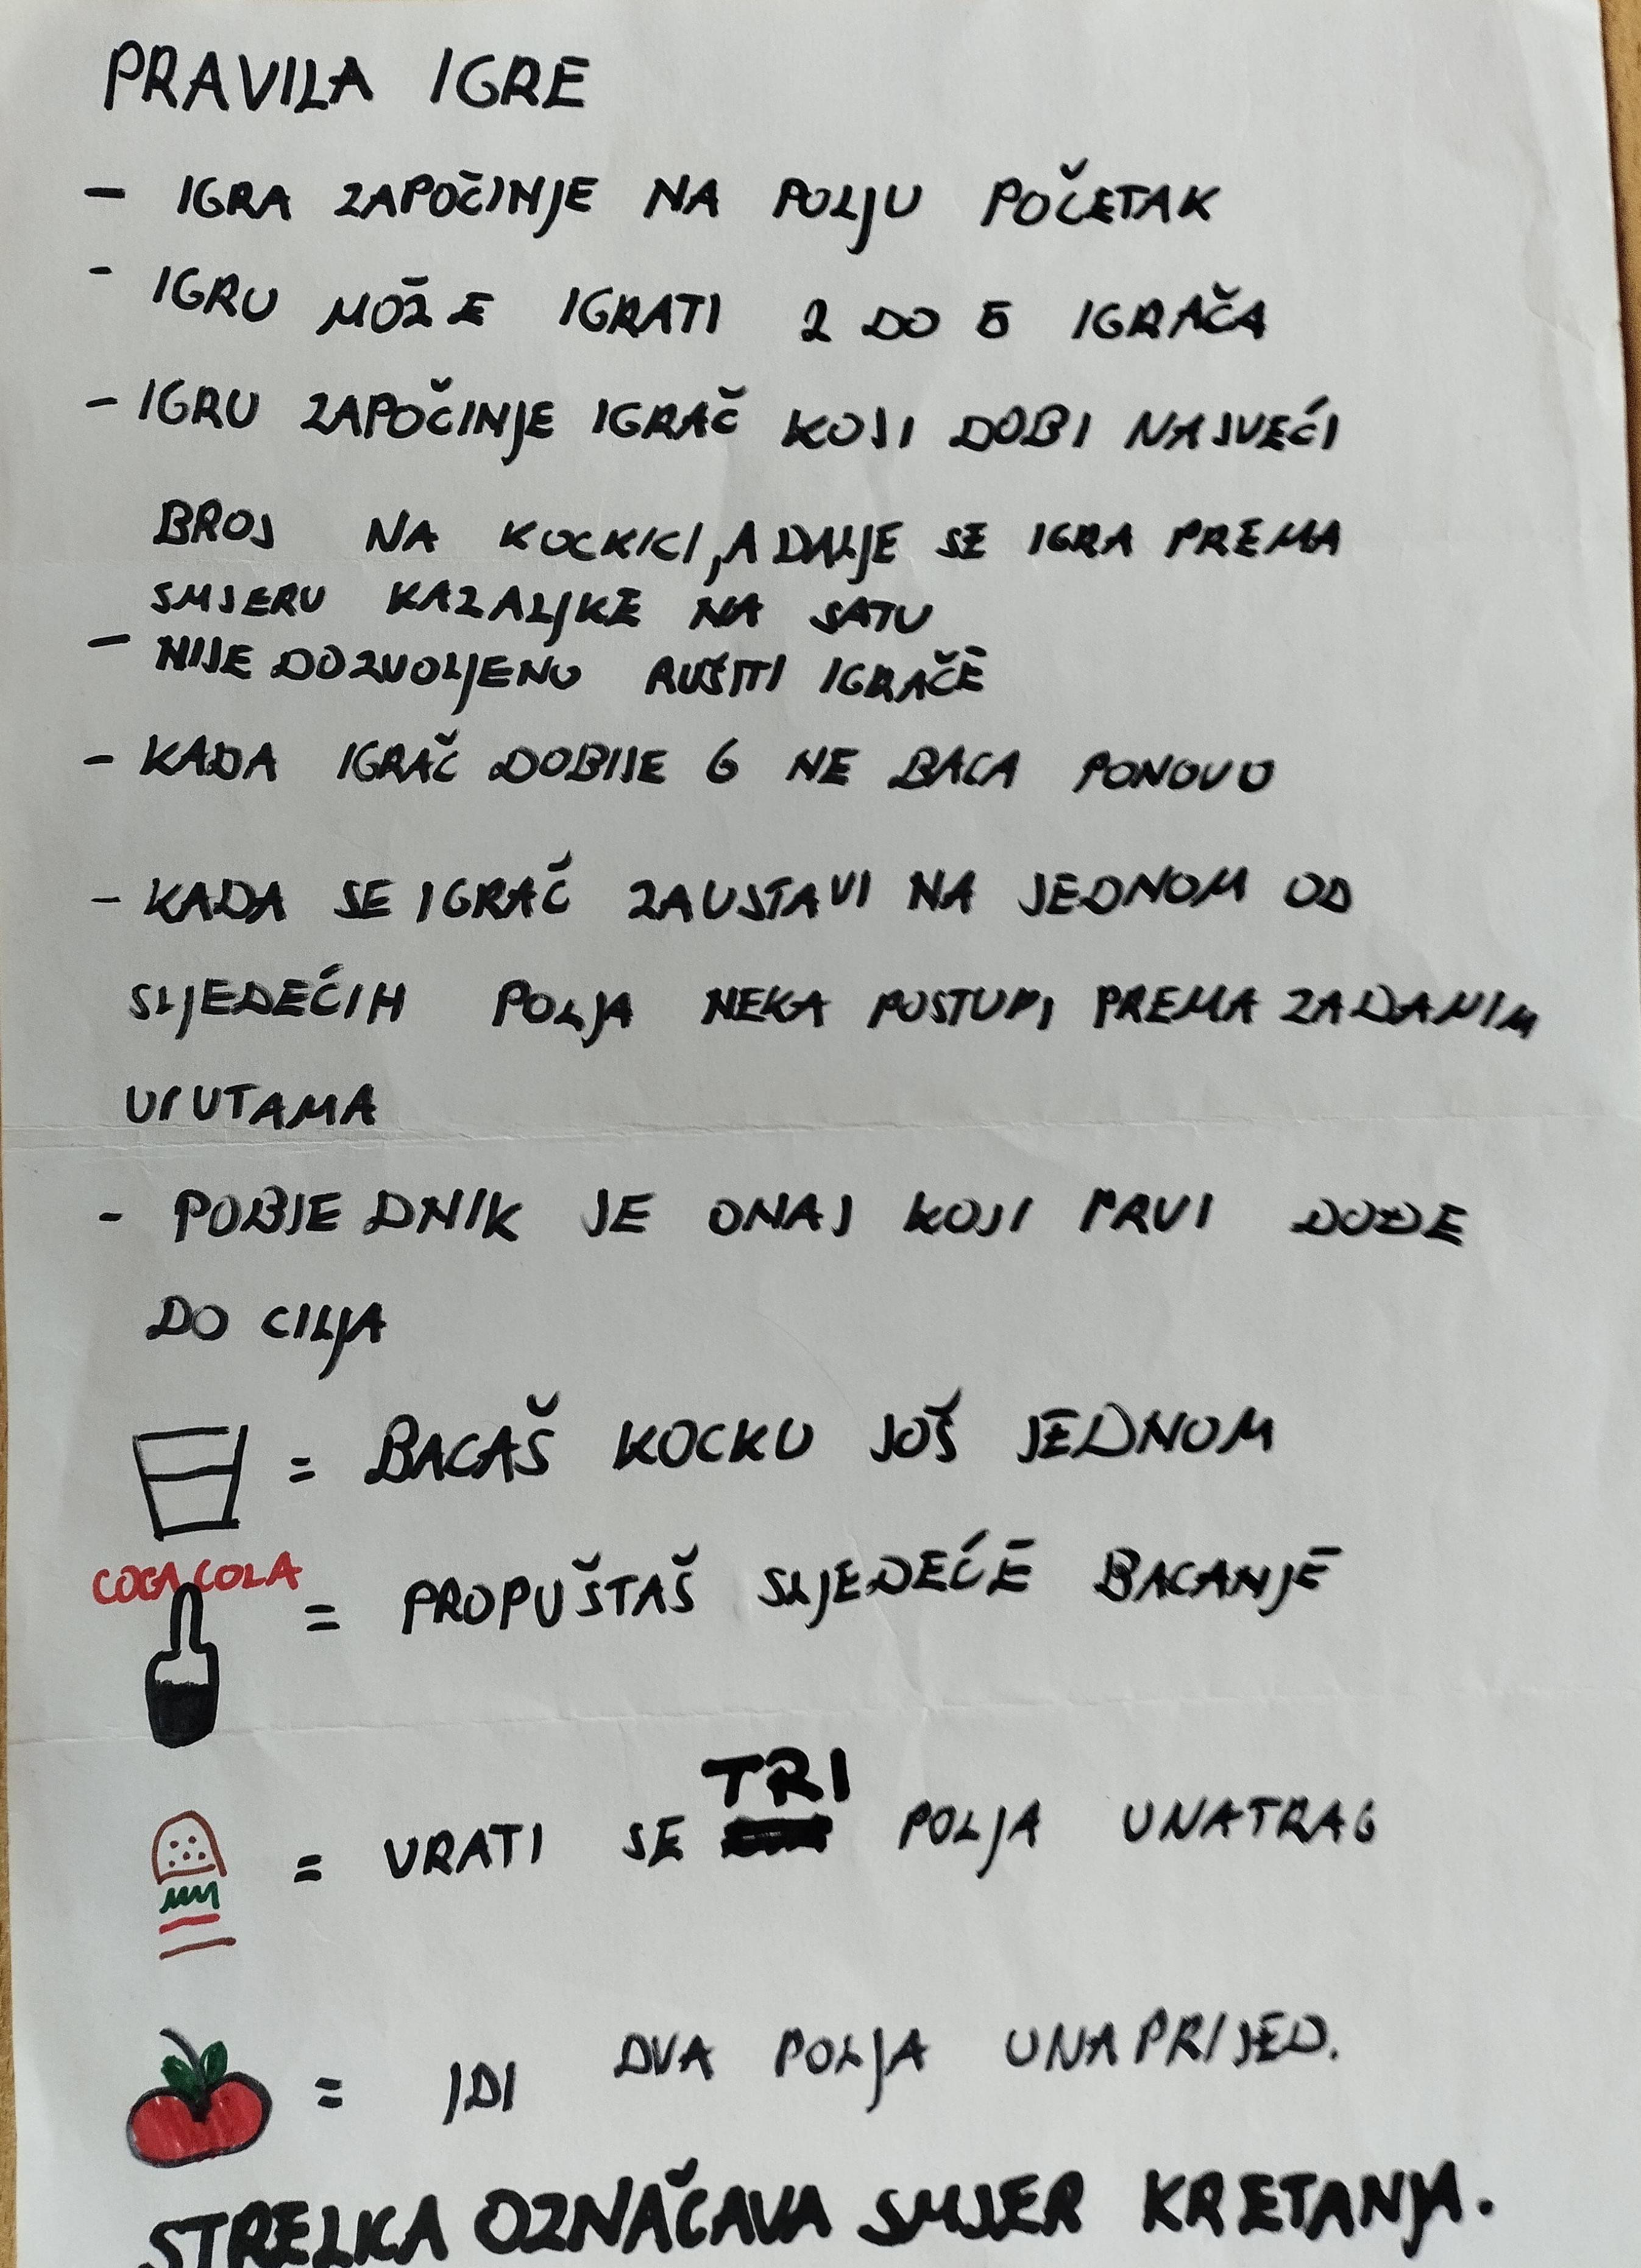 PRAVILA IGRE
- IGRA ZAPOČINJE NA POLJU POČETAK
- IGRU MOŽE IGRATI 2 DO 5 IGRAČA
- IGRU ZAPOČINJE IGRAČ KOJI DOBI NAJVEĆI
BROJ NA KOCKICI, A DALJE SE IGRA PREMA
SMJERU KAZALJKE NA SATU
- NIJE DOZVOLJENO RUŠITI IGRAČE
- KADA IGRAČ DOBIJE 6 NE BACA PONOVO
- KADA SE IGRAČ ZAUSTAVI NA JEDNOM OD
SLJEDEĆIH POLJA NEKA POSTUPI PREMA ZADANIM
UPUTAMA
- POBJEDNIK JE ONAJ KOJI PRVI DOĐE
DO CILJA
= BACAŠ KOCKU JOŠ JEDNOM
COCA COLA
= PROPUŠTAŠ SLJEDEĆE BACANJE
TRI
= VRATI SE POLJA UNATRAG
= IDI DVA POLJA UNAPRIJED.
STRELICA OZNAČAVA SMJER KRETANJA.